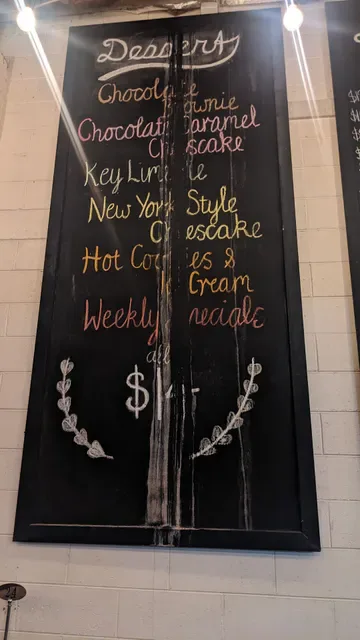 Dessert
Chocolate
Brownie
Chocolate Caramel
Cheesecake
Key Lime
New York Style
Cheesecake
Hot Cookies &
Cream
Weekly Specials
all
$